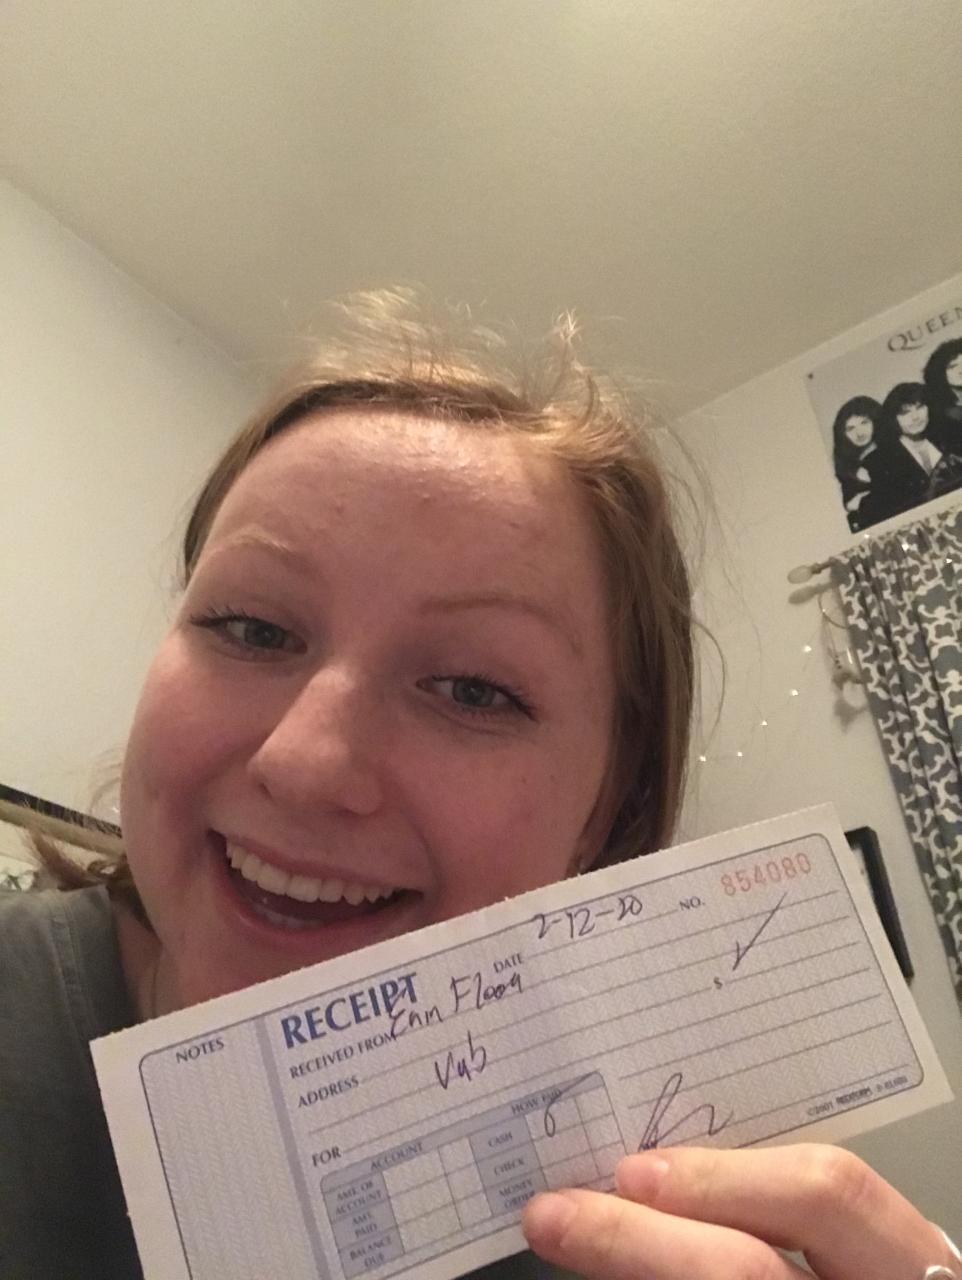 QUEEN
NOTES
RECEIPT DATE 2-12-20 NO. 854080
RECEIVED FROM Erin Flood
ADDRESS
$
FOR
ACCOUNT HOW PAID
AMT. OF ACCOUNT CASH
AMT. PAID CHECK
BALANCE DUE MONEY ORDER
©2001 REDIFORM